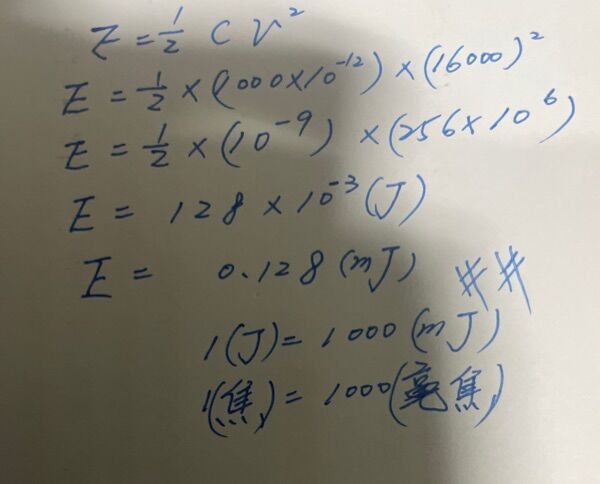 E = 1/2 C V²
E = 1/2 × (1000×10⁻¹²) × (16000)²
E = 1/2 × (10⁻⁹) × (256×10⁶)
E = 128 × 10⁻³ (J)
E = 0.128 (mJ) ##
1(J) = 1000 (mJ)
1(焦) = 1000(毫焦)